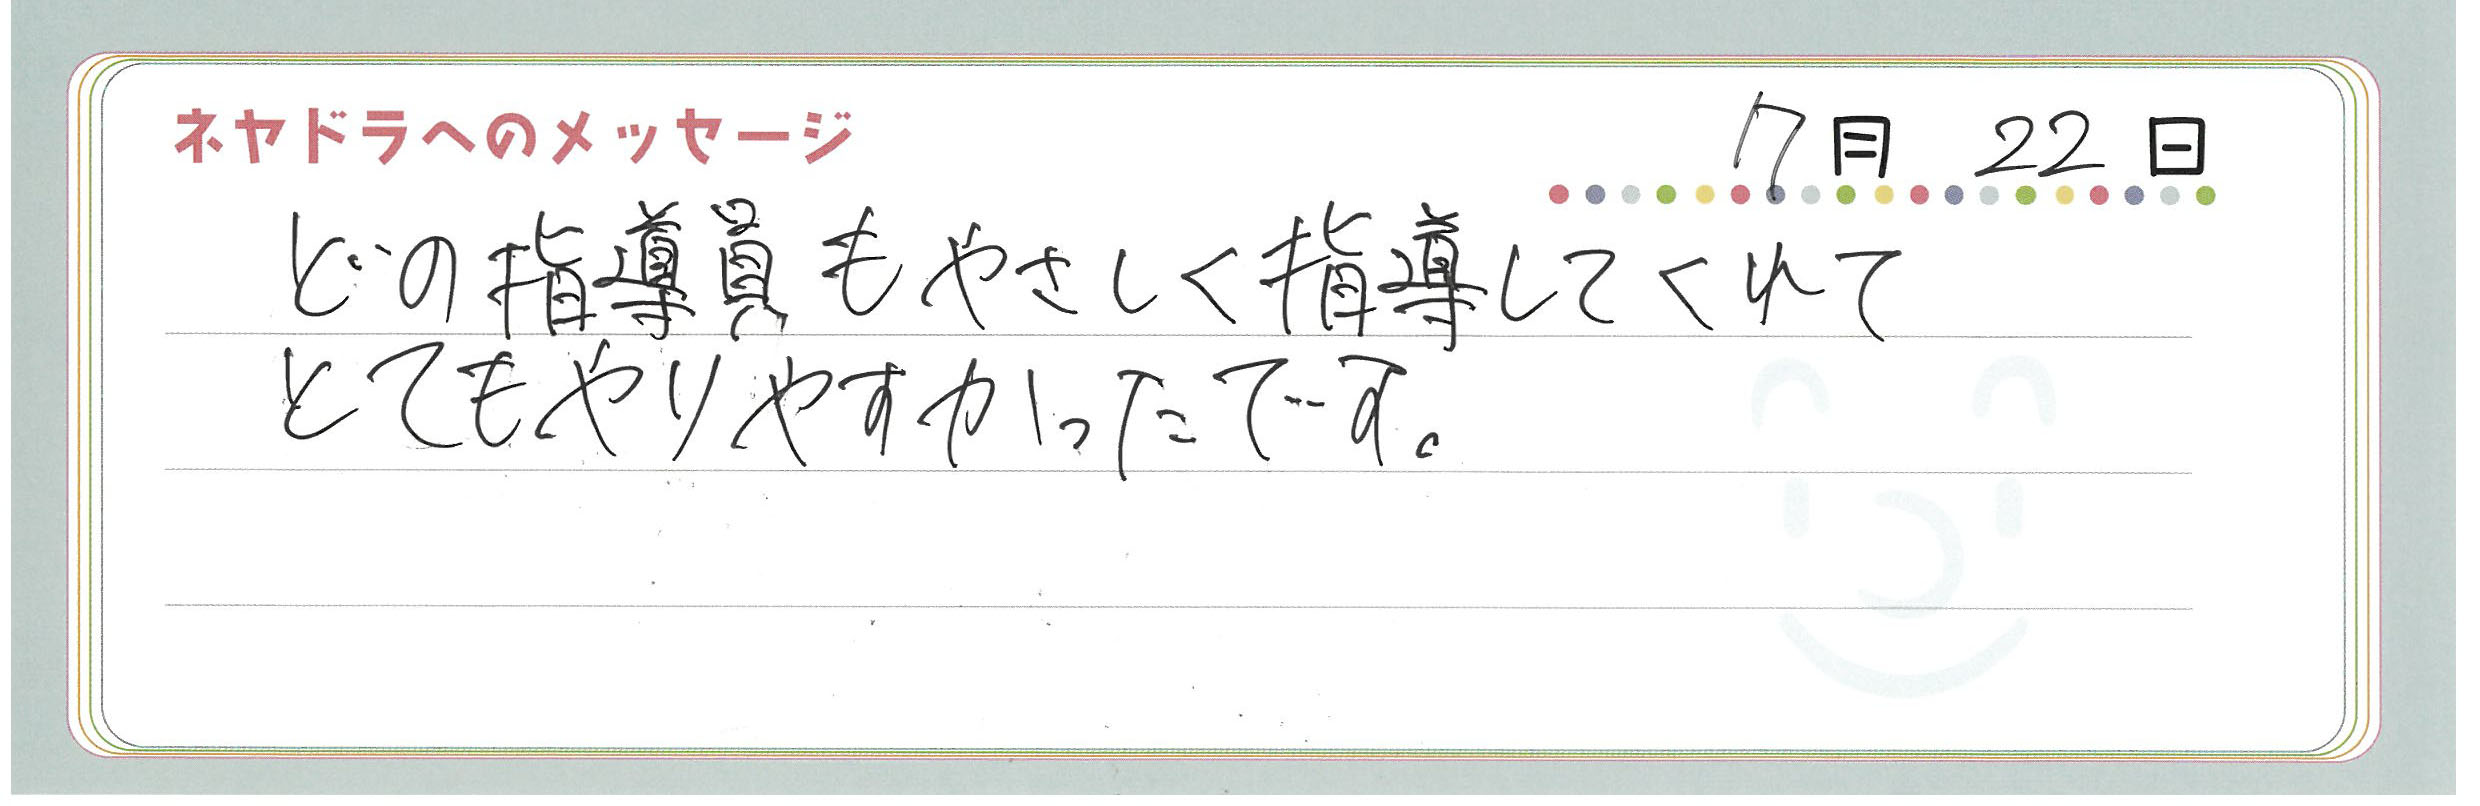 ネヤドラへのメッセージ
7月 22日
どの指導員もやさしく指導してくれて
とてもやりやすかったです。